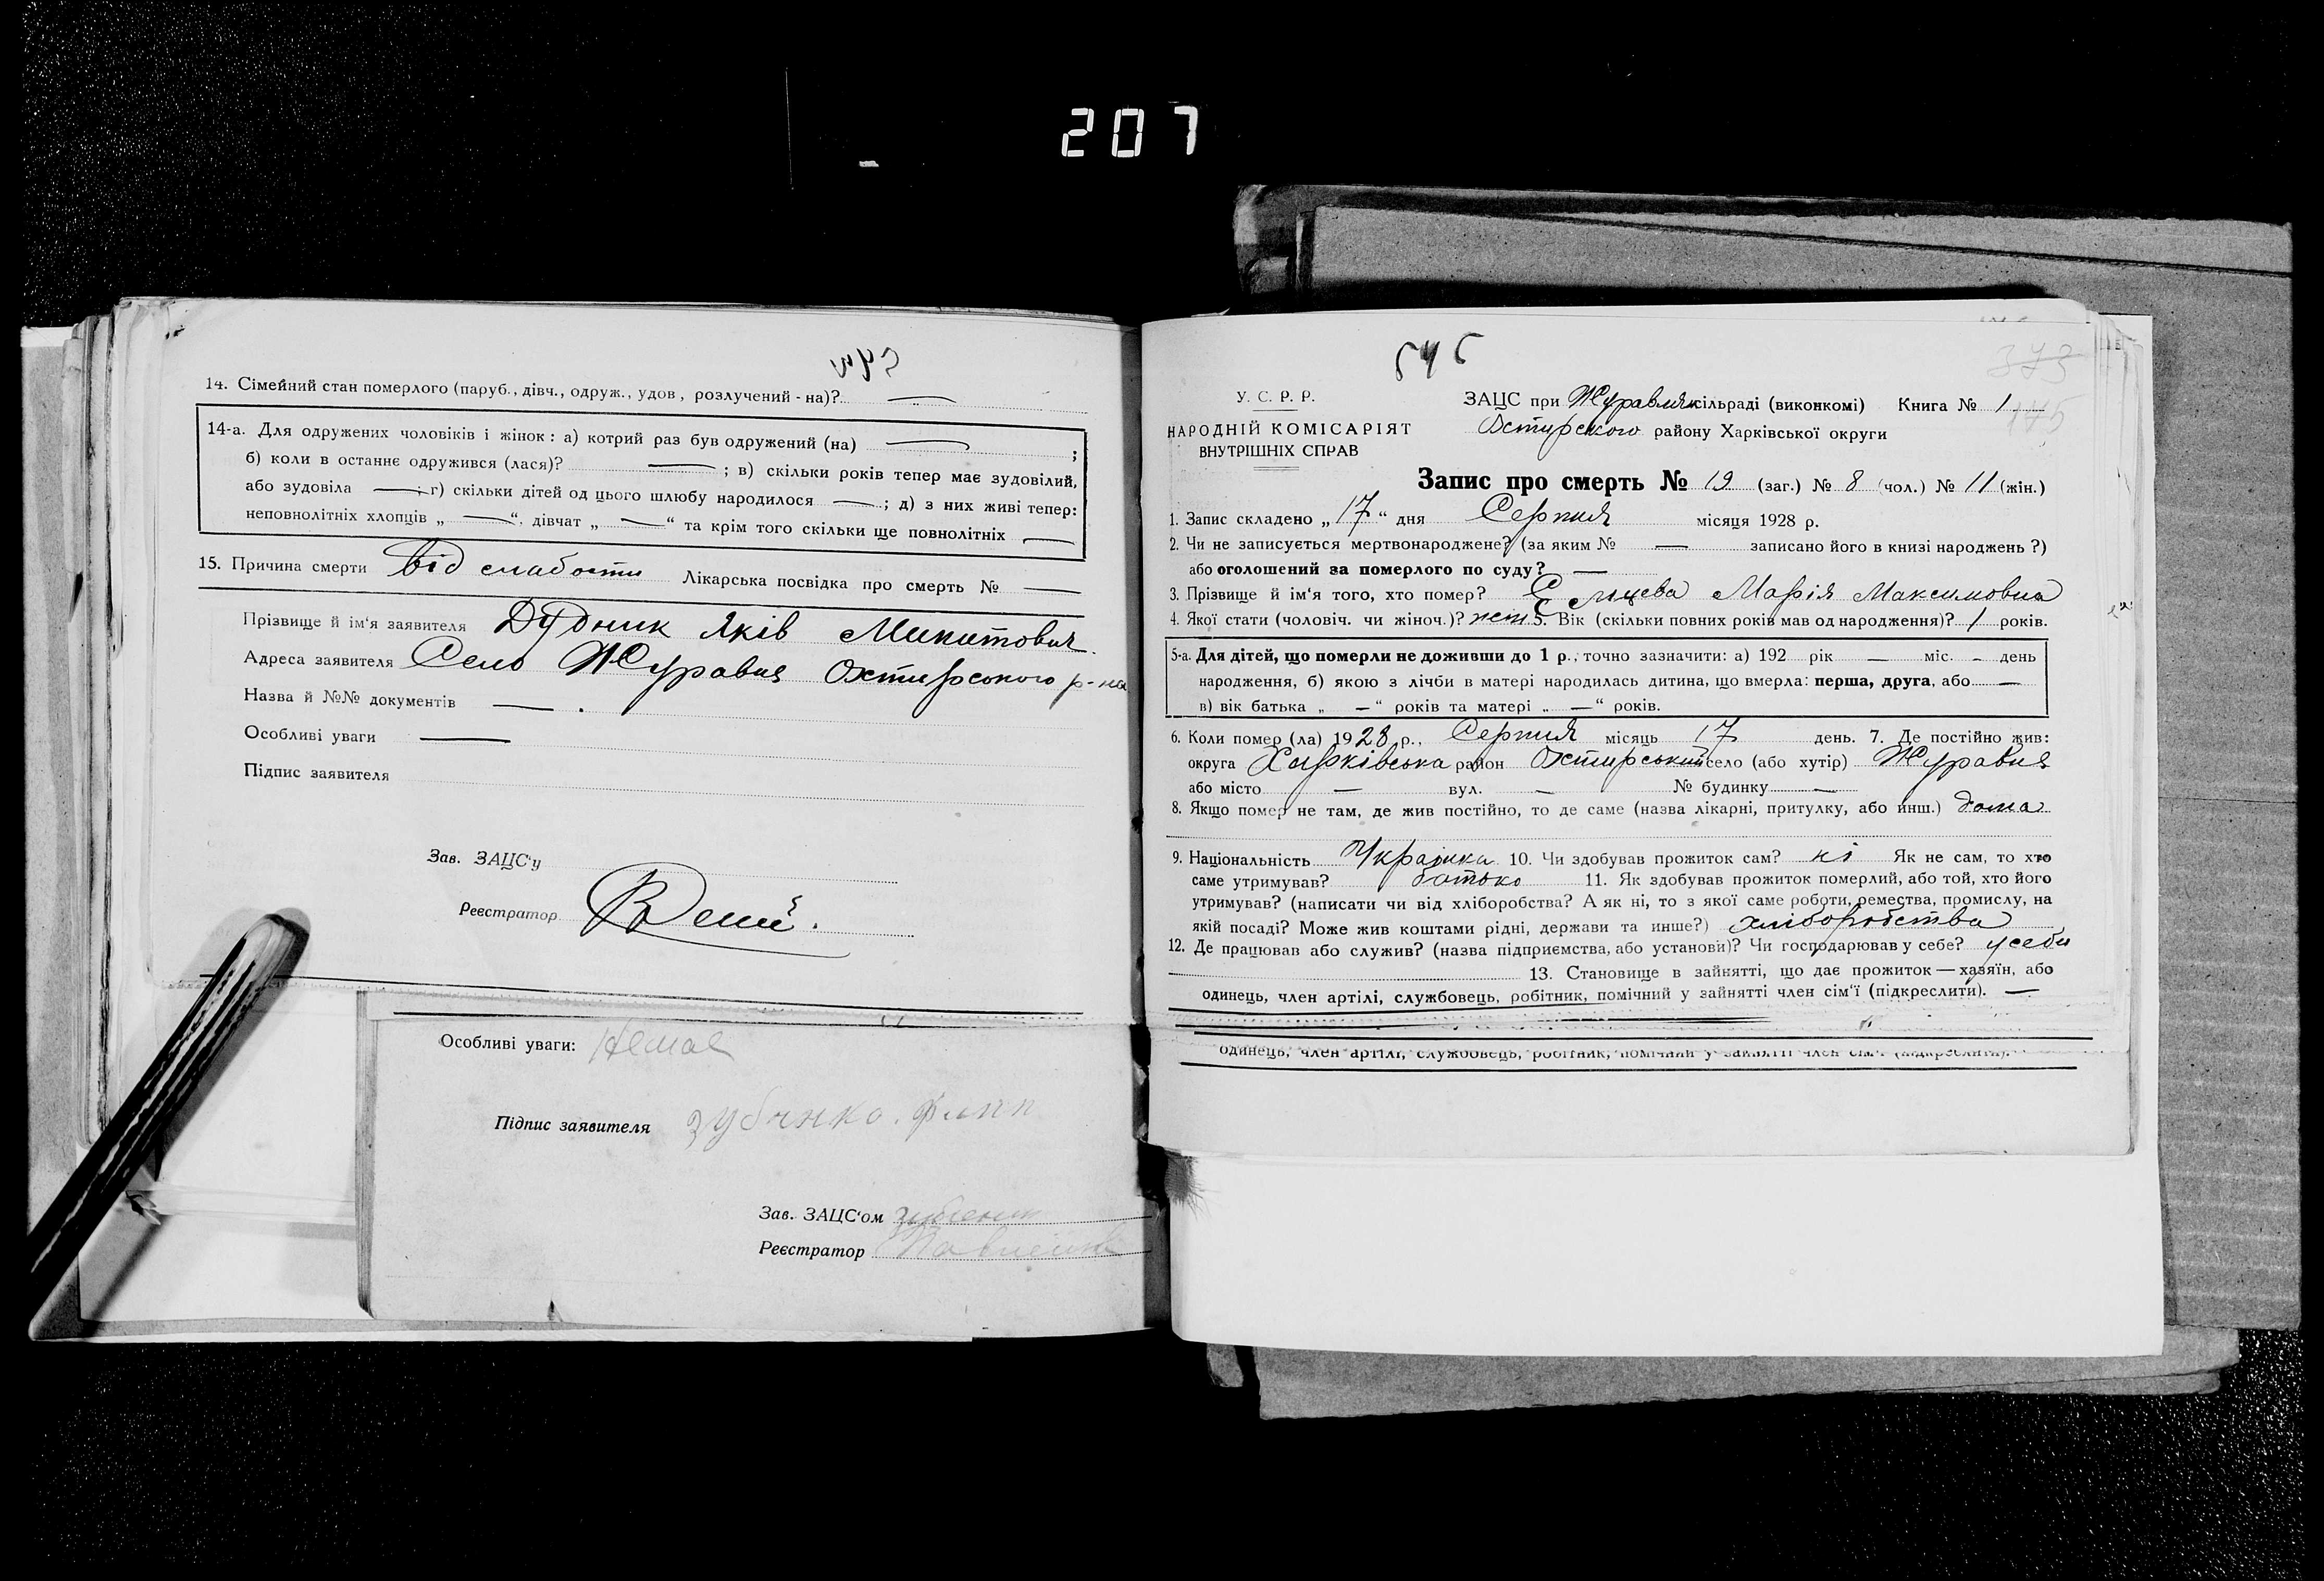 207
14. Сімейний стан померлого (паруб., дівч., одруж., удов., розлучений-на)? —
14-а. Для одружених чоловіків і жінок: а) котрий раз був одружений (на) — ;
б) коли в останнє одружився (лася)? — ; в) скільки років тепер має зудовілий,
або зудовіла — ; г) скільки дітей од цього шлюбу народилося — ; д) з них живі тепер:
неповнолітніх хлопців „ — “, дівчат „ — “ та крім того скільки ще повнолітніх —
15. Причина смерти від слабости Лікарська посвідка про смерть № —
Прізвище й ім'я заявителя Дудник Яків Микитович.
Адреса заявителя Село Журавне Охтирського р-на
Назва й №№ документів — .
Особливі уваги —
Підпис заявителя
Зав. ЗАЦС'у
Реєстратор
Особливі уваги: Немає
Підпис заявителя
Зав. ЗАЦС'ом
Реєстратор
545
373
175
У. С. Р. Р.
НАРОДНІЙ КОМІСАРІЯТ
ВНУТРІШНІХ СПРАВ
ЗАЦС при Журавлян сільраді (виконкомі) Книга № 1
Охтирского району Харківської округи
Запис про смерть № 19 (заг.) № 8 (чол.) № 11 (жін.)
1. Запис складено „17“ дня Серпня місяця 1928 р.
2. Чи не записується мертвонароджене? (за яким № — записано його в книзі народжень?)
або оголошений за померлого по суду? —
3. Прізвище й ім'я того, хто помер? Ельцева Марія Максимовна
4. Якої стати (чоловіч. чи жіноч.)? жен. 5. Вік (скільки повних років мав од народження)? 1 років.
5-а. Для дітей, що померли не доживши до 1 р., точно зазначити: а) 192 рік — міс. - день
народження, б) якою з лічби в матері народилась дитина, що вмерла: перша, друга, або —
в) вік батька „ — “ років та матері „ — “ років.
6. Коли помер (ла) 1928 р., Серпня місяць 17 день. 7. Де постійно жив:
округа Харківська район Охтирський село (або хутір) Журавне
або місто — вул. — № будинку —
8. Якщо помер не там, де жив постійно, то де саме (назва лікарні, притулку, або инш.) дома
9. Національність Українка 10. Чи здобував прожиток сам? ні Як не сам, то хто
саме утримував? батько 11. Як здобував прожиток померлий, або той, хто його
утримував? (написати чи від хліборобства? А як ні, то з якої саме роботи, ремества, промислу, на
якій посаді? Може жив коштами рідні, держави та инше?) хліборобства
12. Де працював або служив? (назва підприємства, або установи)? Чи господарював у себе? у себе
13. Становище в зайнятті, що дає прожиток — хазяїн, або
одинець, член артілі, службовець, робітник, помічний у зайнятті член сім'ї (підкреслити). —
одинець, член артілі, службовець, робітник, помічний у зайнятті член сім'ї (підкреслити).